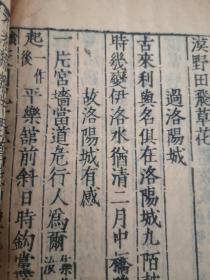 漠野田飛草花
過洛陽城
古來利與名俱在洛陽城九陌
時幾變伊洛水猶清二月中
故洛陽城有感
一片宮墻當道危行人爲爾集
起一作後平樂舘前斜日時鈎黨